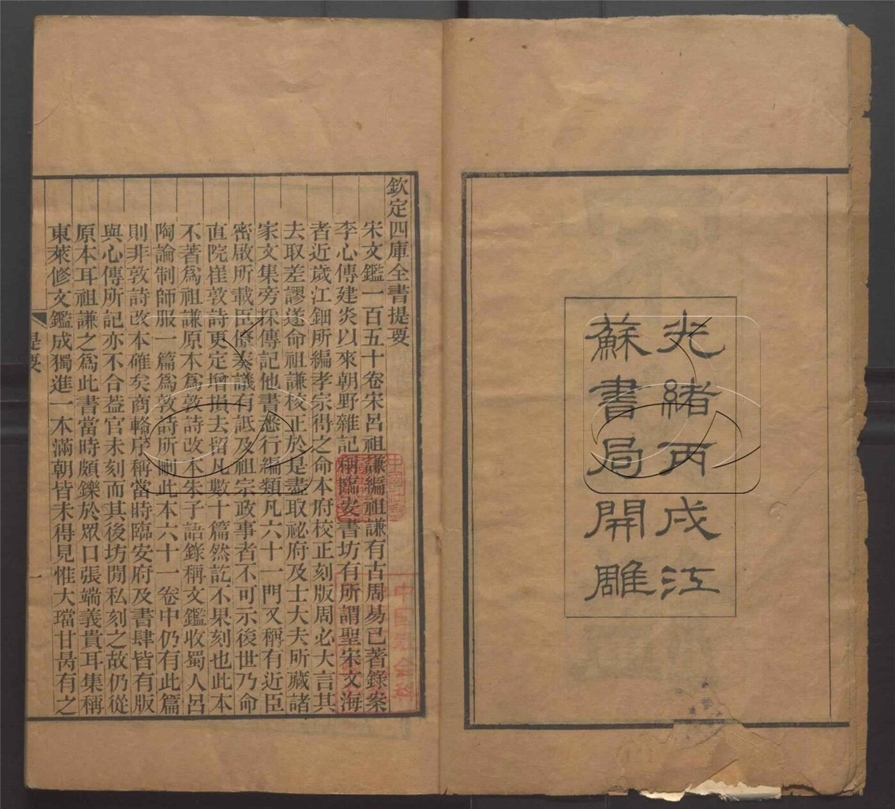 光緒丙戌江
蘇書局開雕
欽定四庫全書提要
宋文鑑一百五十卷宋呂祖謙編祖謙有古周易已著錄案
李心傳建炎以來朝野雜記稱臨安書坊有所謂聖宋文海
者近歲江鈿所編孝宗得之命本府校正刻版周必大言其
去取差謬遂命祖謙校正於是盡取祕府及士大夫所藏諸
家文集旁採傳記他書悉行編類凡六十一門又稱有近臣
密啟所載臣僚奏議有詆及祖宗政事者不可示後世乃命
直院崔敦詩更定增損去留凡數十篇然訖不果刻也此本
不著爲祖謙原本爲敦詩改本朱子語錄稱文鑑收蜀人呂
陶論制師服一篇爲敦詩所刪此本六十一卷中仍有此篇
則非敦詩改本確矣商輅序稱當時臨安府及書肆皆有版
與心傳所記亦不合葢官未刻而其後坊閒私刻之故仍從
原本耳祖謙之爲此書當時頗鑠於眾口張端義貴耳集稱
東萊修文鑑成獨進一本滿朝皆未得見惟大璫甘昺有之
提要
一